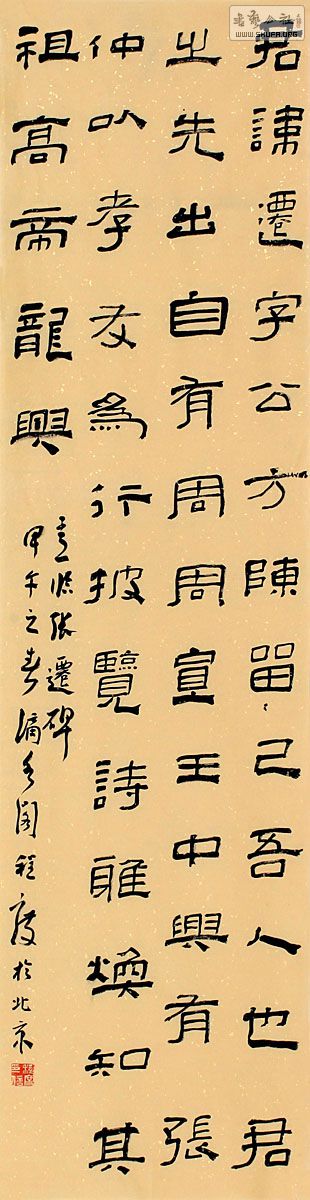 書藝公社
WWW.SHUFA.ORG
君諱遷字公方陳留己吾人也君
之先出自有周周宣王中興有張
仲以孝友為行披覽詩雅煥知其
祖高帝龍興
意臨張遷碑
甲午之春閣程度於北京